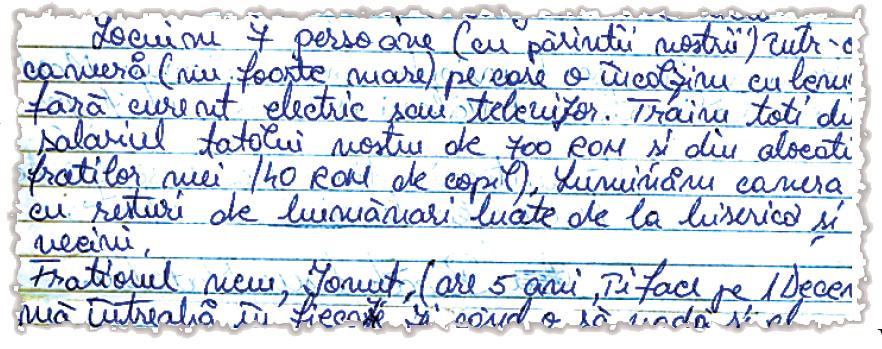 Locuim 7 persoane (cu părintii nostrii) într-o
cameră (nu foarte mare) pe care o încălzim cu lemn
fără curent electric sau televizor. Traim toti din
salariul tatălui nostru de 700 RON si din alocati
fratilor mei (40 RON de copil). Luminăm camera
cu resturi de lumânari luate de la biserica și
vecini.
Fratiorul meu, Ionut, (are 5 ani, îi face pe 1 Decem
mă întreabă în fiecare zi când o să vadă si el